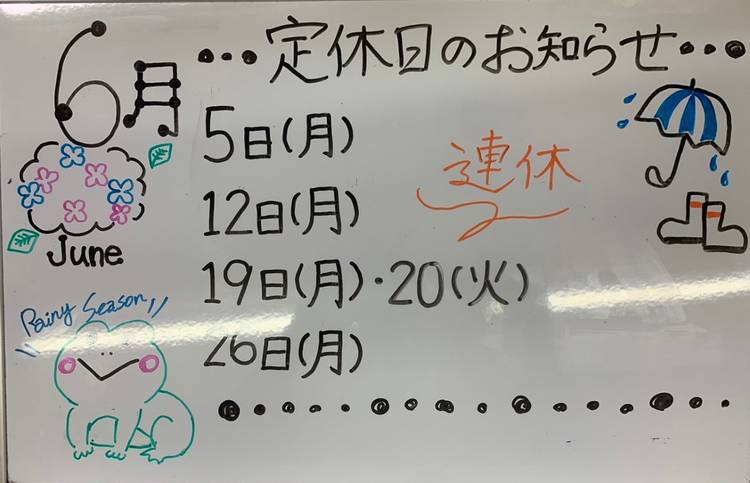 6月
…定休日のお知らせ…
5日(月)
連休
12日(月)
19日(月)・20(火)
26日(月)
June
Rainy Season